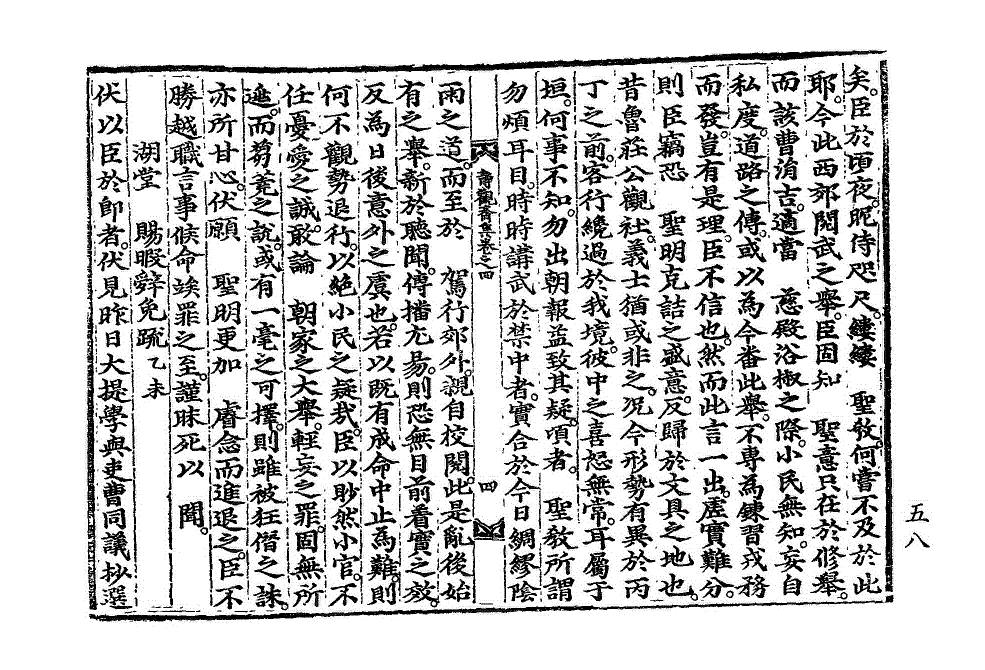 矣。臣於曩夜。昵侍咫尺。縷縷 聖敎。何嘗不及於此
耶。今此西郊閱武之擧。臣固知 聖意只在於修擧。
而該曹涓吉。適當 慈殿浴椒之際。小民無知。妄自
私度。道路之傳。或以爲今番此擧。不專爲鍊習戎務
而發。豈有是理。臣不信也。然而此言一出。虛實難分。
則臣竊恐 聖明克詰之盛意。反歸於文具之地也。
昔魯莊公觀社。義士猶或非之。况今形勢有異於丙
丁之前。客行繞過於我境。彼中之喜怒無常。耳屬于
垣。何事不知。勿出朝報。益致其疑。頃者 聖敎所謂
勿煩耳目。時時講武於禁中者。實合於今日綢繆陰
壽觀齋集卷之四
四
雨之道。而至於 駕行郊外。親自校閱。此是亂後始
有之擧。新於聽聞。傳播尤易。則恐無目前着實之效。
反爲日後意外之虞也。若以旣有成命中止爲難。則
何不觀勢退行。以絶小民之疑哉。臣以眇然小官。不
任憂愛之誠。敢論 朝家之大擧。輕妄之罪。固無所
逃。而芻蕘之說。或有一毫之可擇。則雖被狂僭之誅。
亦所甘心。伏願 聖明更加 睿念而進退之。臣不
勝越職言事候命竢罪之至。謹昧死以 聞。
湖堂 賜暇辭免疏 乙未
伏以臣於卽者。伏見昨日大提學與吏曹同議抄選
五八